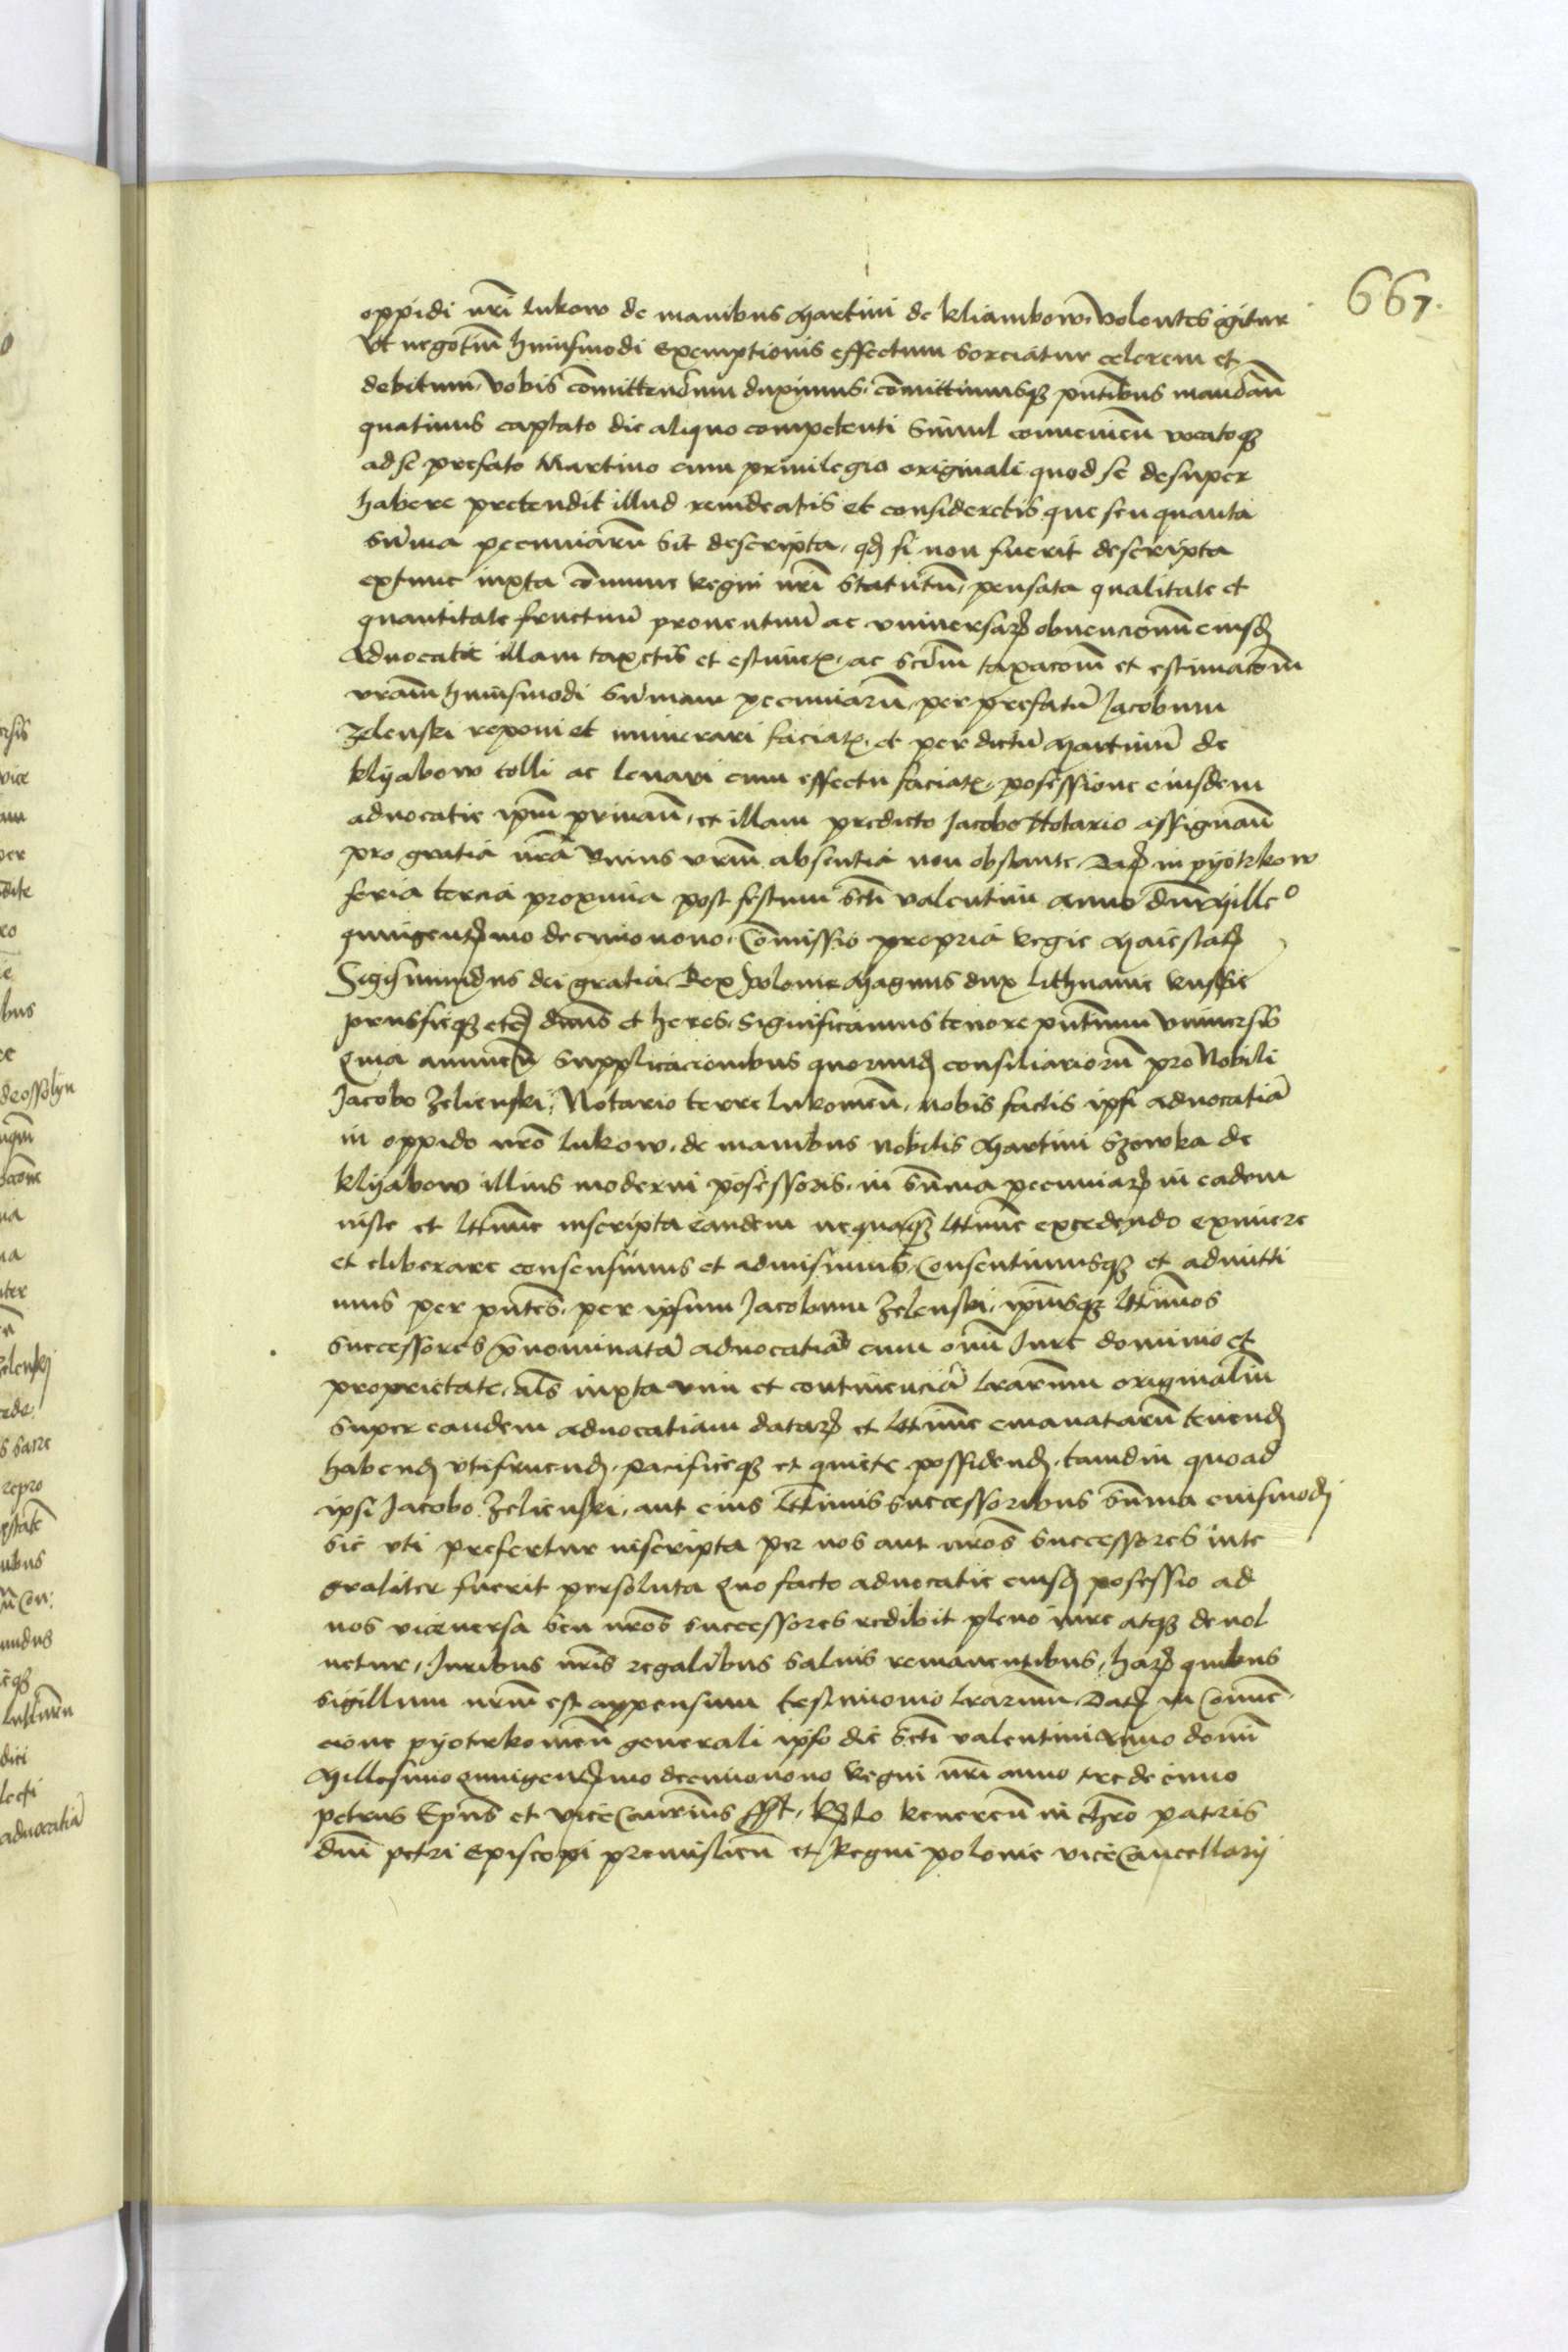 667.
oppidi nr̄i Lukow de manibus Martini de Kliambow. Volentes igitur
Vt negotiū huiusmodi exemptionis effectum sorciatur celerem et
debitum, vobis cōmittendum duximus, cōmittimusqʒ pn̄tibus mandan̄
quatinus captato die aliquo competenti simul convenien̄ vocatoqʒ
ad se prefato Martino cum privilegio originali quod se desuper
habere pretendit illud revideatis et consideretis que seu quanta
sūma pecuniarū sit descripta, qđ si non fuerit descripta
extunc iuxta cōmune regni nr̄i statutū, pensata qualitate et
quantitate fructuū proventuū ac vniversaꝝ obvencionū eiusđ
Advocatie illam taxetis et estimetꝭ, ac scđm taxacōm et estimacōm
vr̄am huiusmodi sūmam pecuniarū, per prefatū Jacobum
Zelenski reponi et numerari faciatꝭ, et per dictū Martinū de
Klyabow tolli ac levari cum effectu faciatꝭ, possessione eiusdem
advocatie ip̄m privan̄, et illam predicto Jacobo Notario assignan̄
pro gratia nr̄a Vnius vr̄m absentia non obstante. Datꝭ in Pyotrkow
feria tercia proxima post festum scti Valentini anno dn̄i Mille°
quingentꝭmo decimonono. Cōmissio propria Regie Maiestatꝭ
Sigismundus dei gratia Rex Polonie Magnus dux Lithuanie Russie
prussieqʒ etcꝭ dn̄us et heres. Significamus tenore pn̄tium vniversis
Quia annuen̄ supplicacionibus quorunđ consiliariorū pro Nobili
Jacobo Zelienski, Notario terre Lukowien̄, nobis factis ipsi advocatiā
in oppido nr̄o Lukow, de manibus nobilis Martini Szowka de
Klyabow illius moderni possessoris, in sūma pecuniaꝝ in eadem
iuste et lttime inscripta eandem nequaqʒ lttime excedendo eximere
et eliberare consensimus et admisimus, Consentimusqʒ et admitti
mus per pn̄tes, per ipsum Jacobum Zelenski, ipīusqʒ lttimos
successores prenominatā advocatiā cum omī Jure dominio et
proprietate, als iuxta vim et continenciā lrarum originaliū
super eandem advocatiam dataꝝ et lttime emanatarū tenenđ
habenđ vtifruenđ, pacificeqʒ et quiete possidenđ, tamdiu quoad
ipsi Jacobo Zelienski, aut eius lttimis successoribus sūma eiusmođi
sic vti prefertur inscripta per nos aut nr̄os successores inte
graliter fuerit persoluta Quo facto advocatie eiusđ possessio ad
nos viceversa seu nr̄os successores redibit pleno iure atqʒ devol
vetur, Juribus nr̄is regalibus salvis remanentibus, haꝝ quibus
sigillum nr̄um est appensum testimonio lrarum. Datꝭ in Convē
cione Pyotrkowien̄ generali ipso die scti Valentini Anno domi
Millesimo quingentꝭmo decimonono Regni nr̄i anno tredecimo
petrus Ep̄us et viceCancrīus sst, Rꝭlo Reveren̄ in chr̄o patris
dn̄i petri Episcopi premislien̄ et Regni polonie viceCancellarij